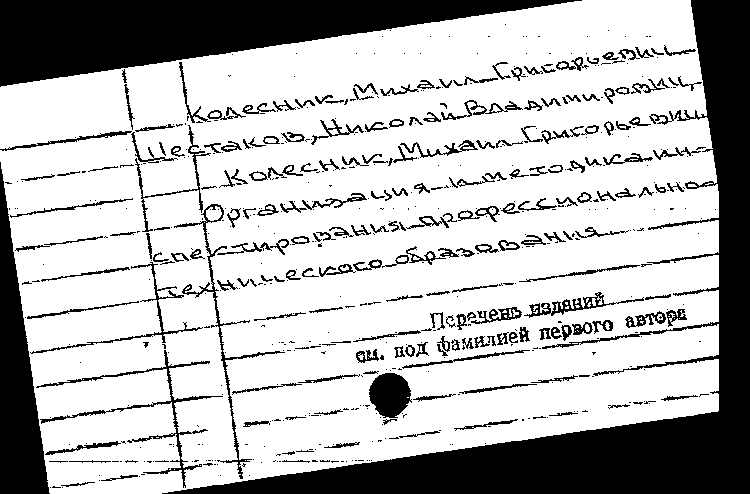 Колесник, Михаил Григорьевич
Шестаков, Николай Владимирович,
Колесник, Михаил Григорьевич
Организация и методика ин-
спектирования профессионально-
технического образования
Перечень изданий
см. под фамилией первого автора